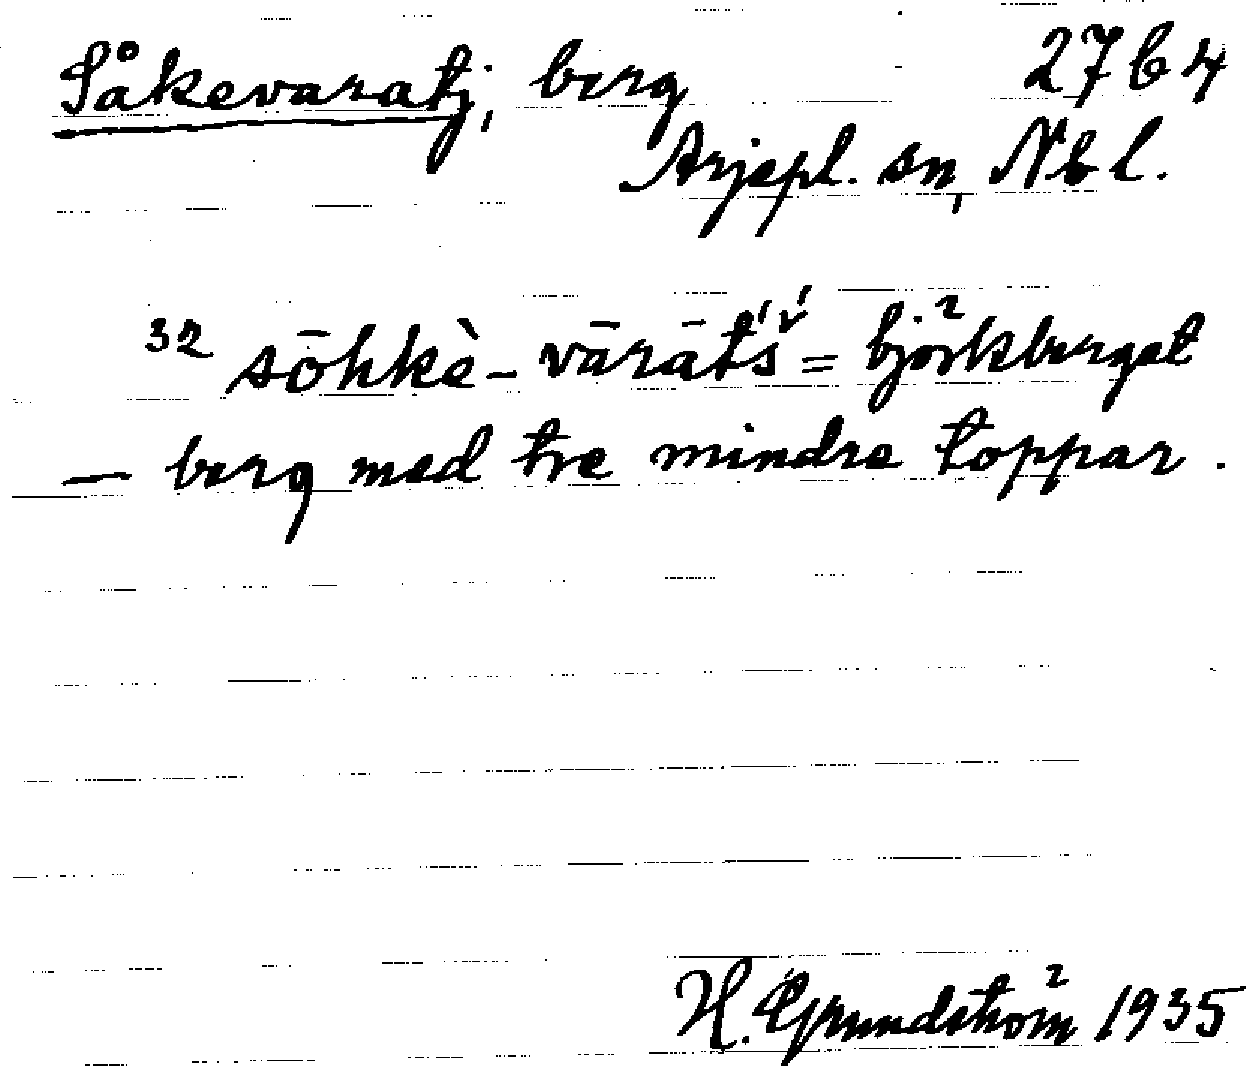 Såkevaratj, berg 27b4
Arjepl. sn, Nb l.
32 sōhkè-vārāt́ś̌ = björkberget
— berg med tre mindre toppar.
H. Grundström 1935